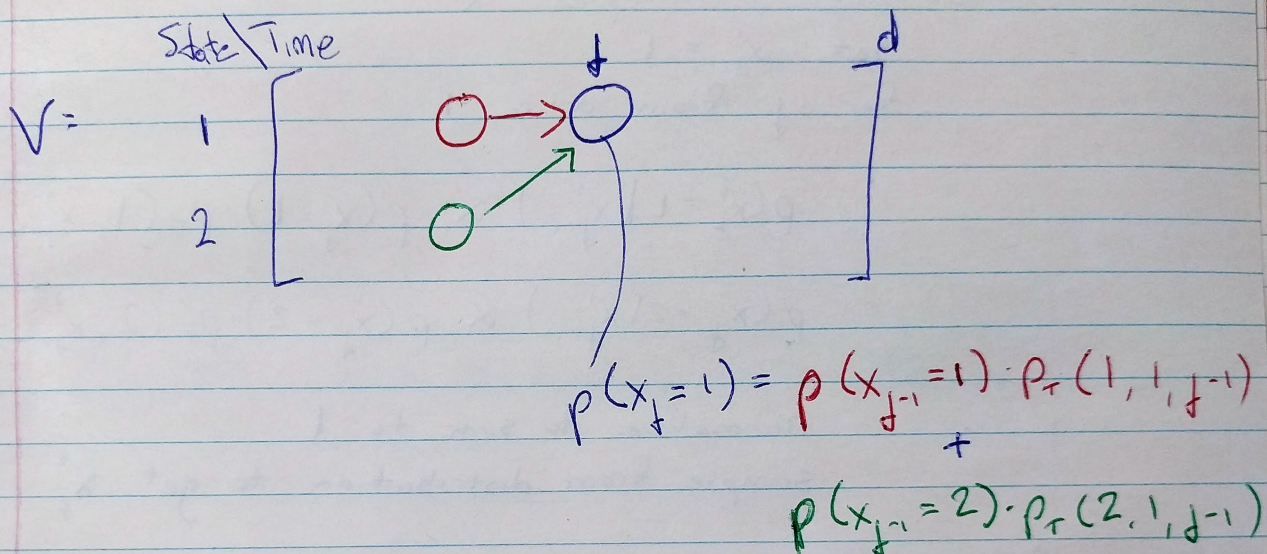 State\Time
j d
V= 1
2
p(x_j=1) = p(x_{j-1}=1)·p_T(1,1,j-1)
+
p(x_{j-1}=2)·p_T(2,1,j-1)